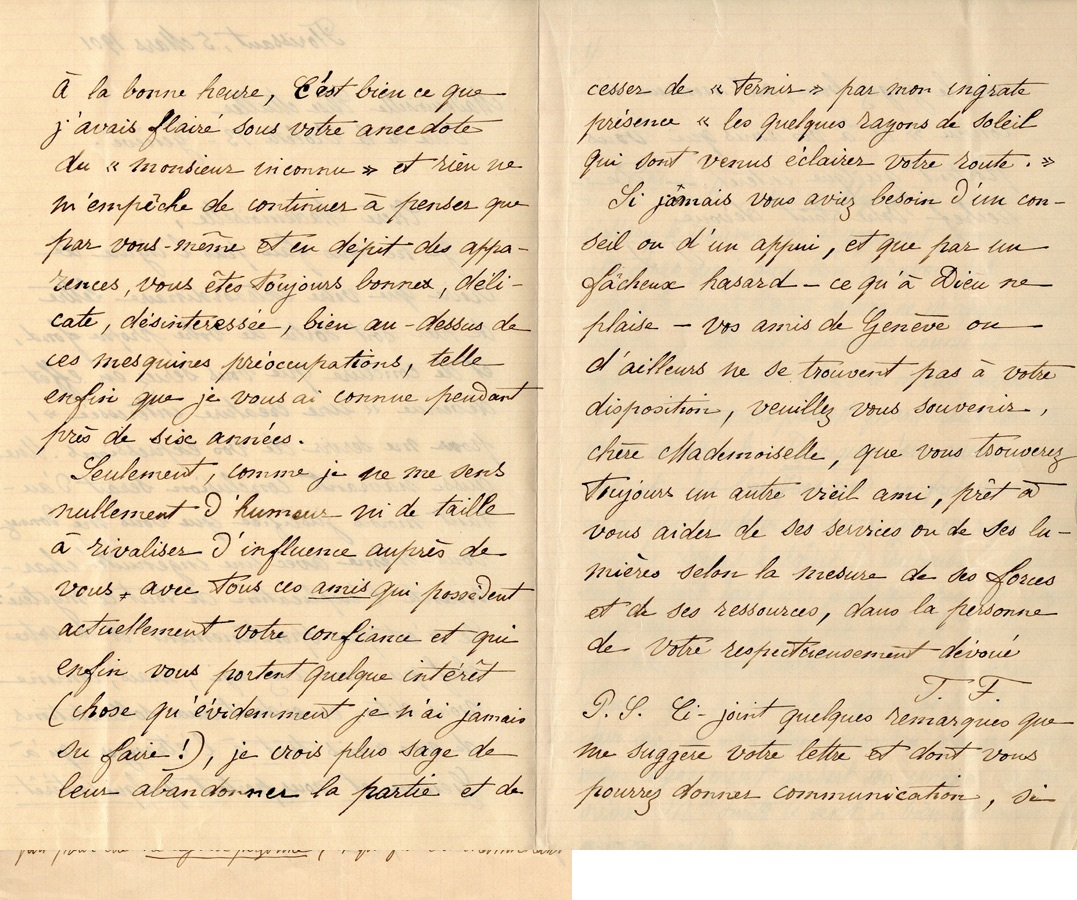 À la bonne heure, C'est bien ce que
j'avais flairé sous votre anecdote
du « monsieur inconnu » et rien ne
m'empêche de continuer à penser que
par vous-même et en dépit des appa-
rences, vous êtes toujours bonne, déli-
cate, désinteressée, bien au-dessus de
ces mesquines préoccupations, telle
enfin que je vous ai connue pendant
près de six années.
Seulement, comme je ne me sens
nullement d'humeur ni de taille
à rivaliser d'influence auprès de
vous, avec tous ces amis qui possèdent
actuellement votre confiance et qui
enfin vous portent quelque intérêt
(chose qu'évidemment je n'ai jamais
su faire !), je crois plus sage de
leur abandonner la partie et de
cesser de « ternir » par mon ingrate
présence « les quelques rayons de soleil
qui sont venus éclairer votre route. »
Si jamais vous aviez besoin d'un con-
seil ou d'un appui, et que par un
fâcheux hasard – ce qu'à Dieu ne
plaise – vos amis de Genève ou
d'ailleurs ne se trouvent pas à votre
disposition, veuillez vous souvenir,
chère Mademoiselle, que vous trouverez
toujours un autre vieil ami, prêt à
vous aider de ses services ou de ses lu-
mières selon la mesure de ses forces
et de ses ressources, dans la personne
de votre respectueusement dévoué
T. F.
P.S. Ci-joint quelques remarques que
me suggère votre lettre et dont vous
pourrez donner communication, si